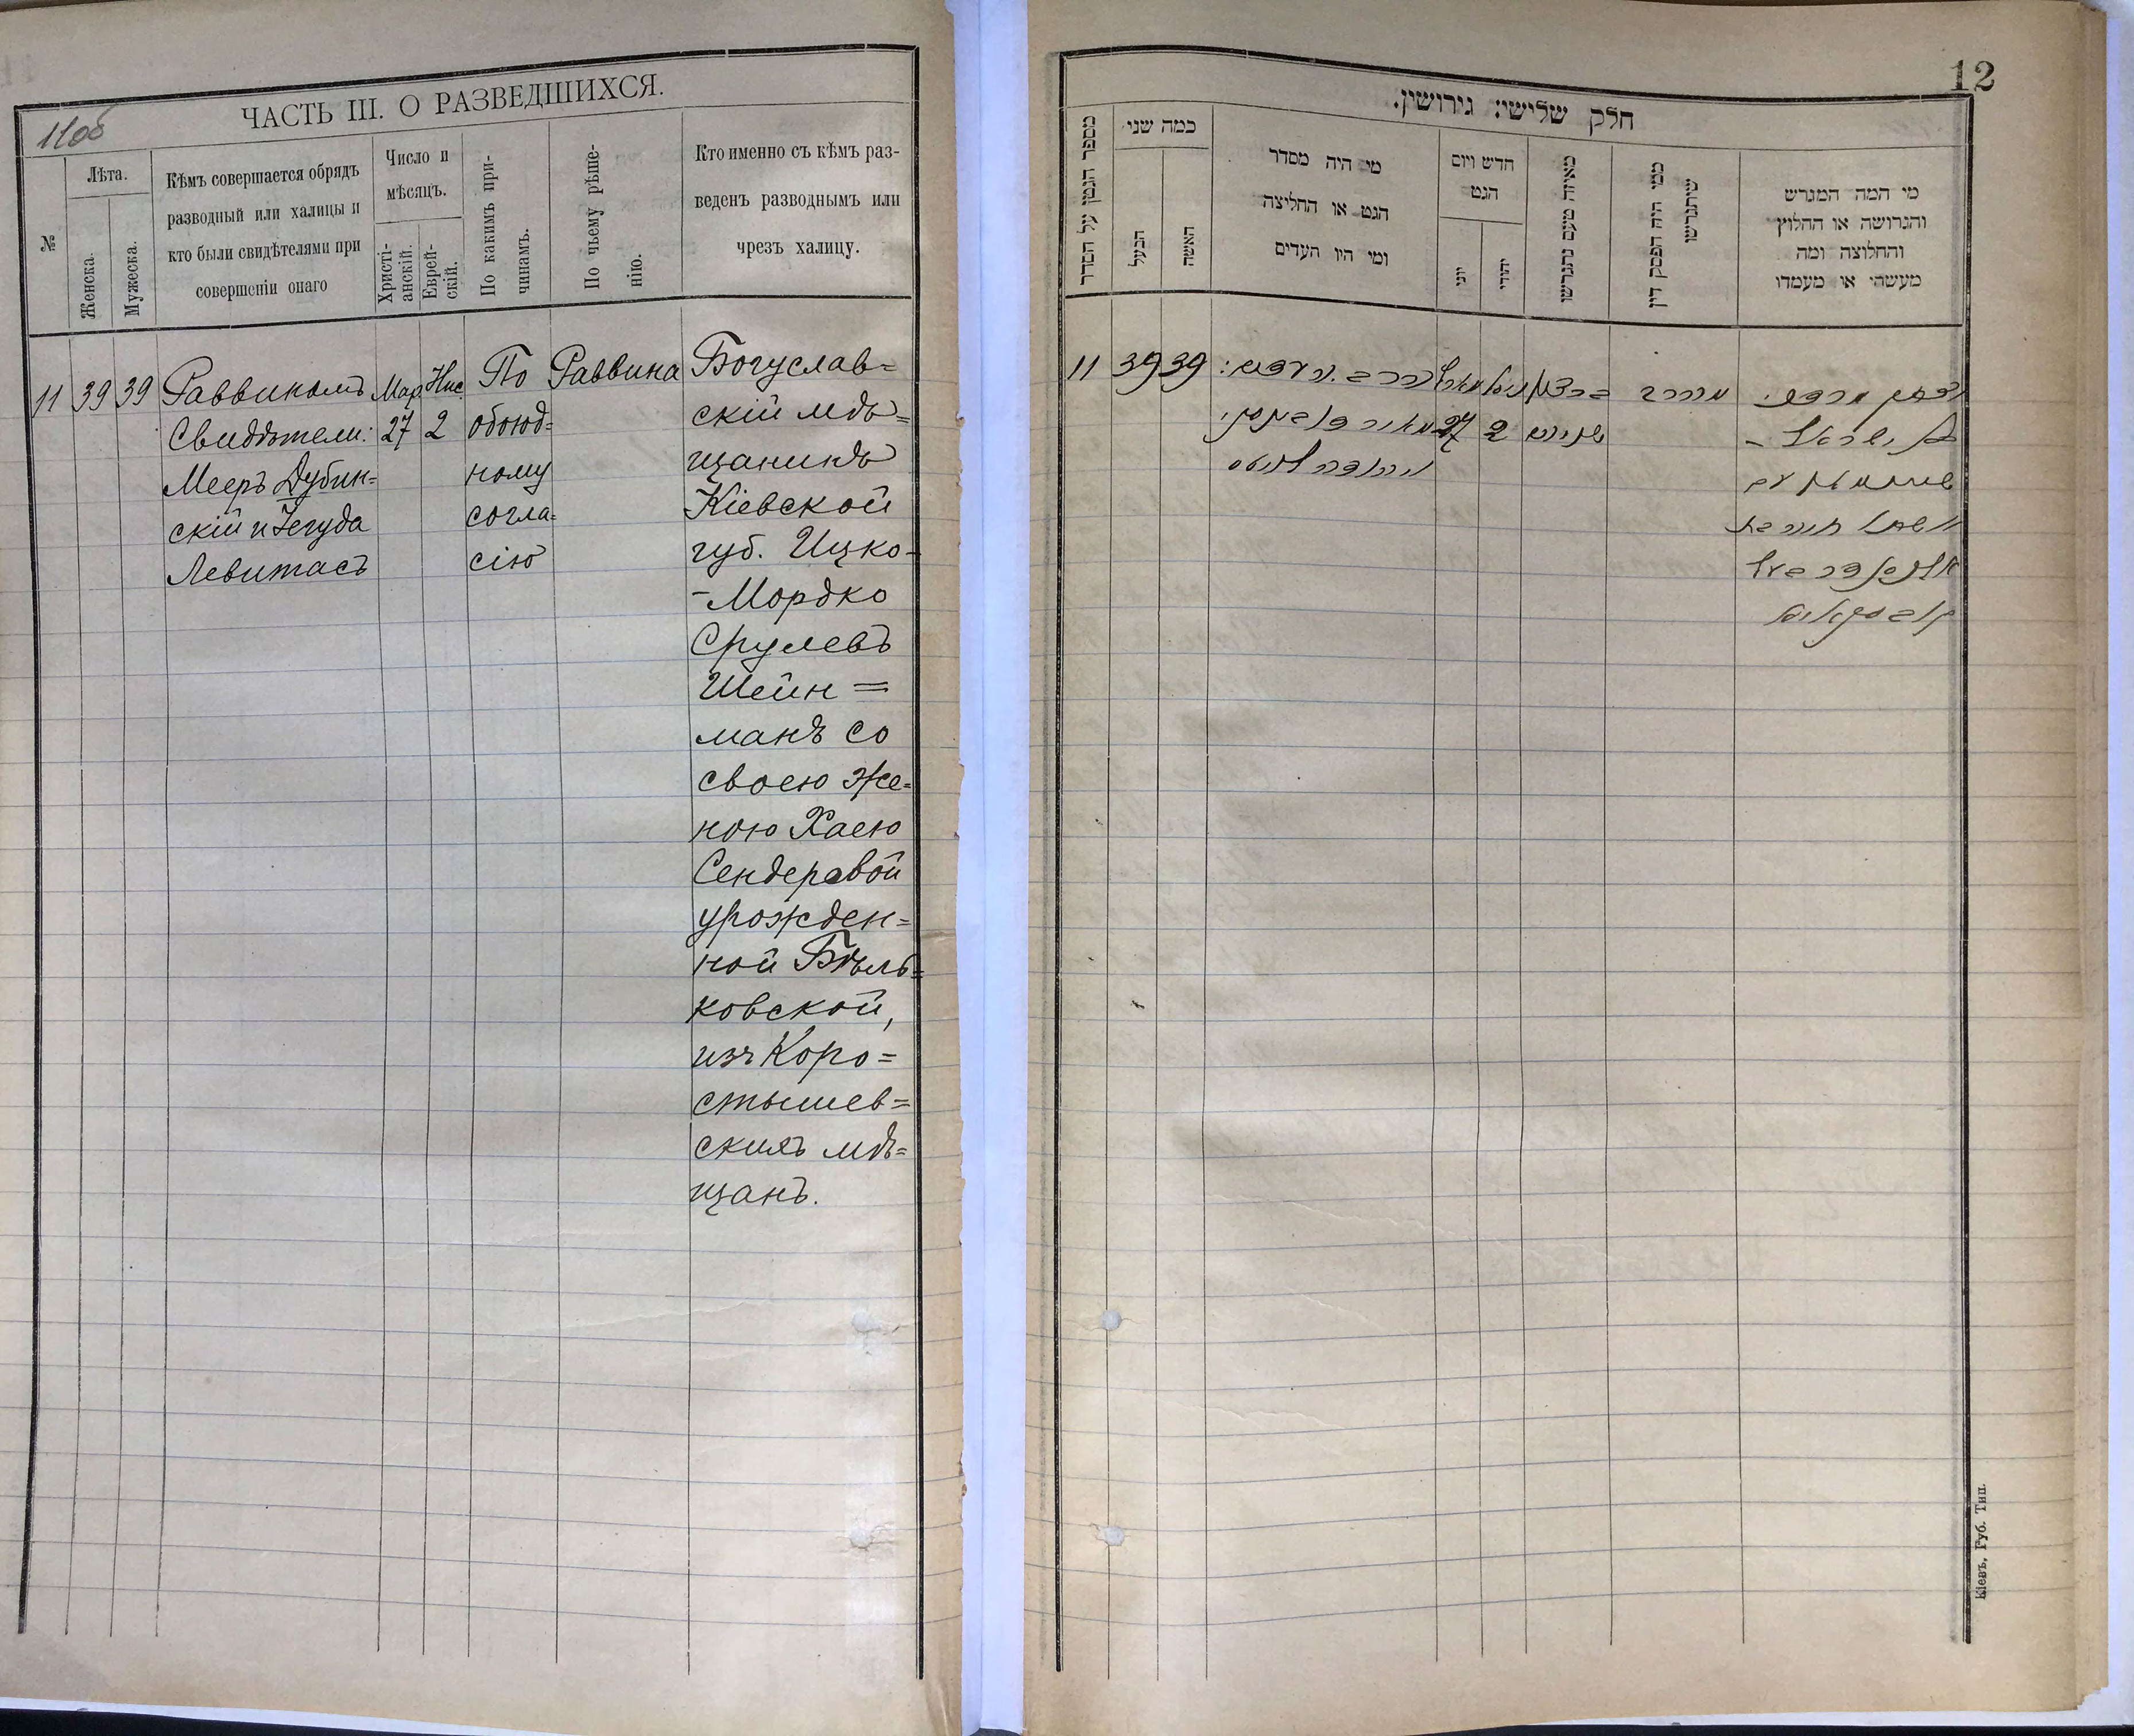 11об
ЧАСТЬ III. О РАЗВЕДШИХСЯ.
№
Лѣта.
Женска.
Мужеска.
Кѣмъ совершается обрядъ
разводный или халицы и
кто были свидѣтелями при
совершеніи онаго
Число и
мѣсяцъ.
Христі-
анскій.
Еврей-
скій.
По какимъ при-
чинамъ.
По чьему рѣше-
нію.
Кто именно съ кѣмъ раз-
веденъ разводнымъ или
чрезъ халицу.
11 39 39
Раввиномъ
Свидѣтели:
Мееръ Дубин=
скій и Іегуда
Левитасъ
Мар
27
Нис
2
По
обоюд=
ному
согла=
сію
Раввина
Богуслав=
скій мѣ=
щанинъ
Кіевской
губ. Ицко-
-Мордко
Срулевъ
Шейн=
манъ со
своею же=
ною Хаею
Сендеравой
урожден=
ной Бѣль=
ковской,
изъ Коро=
стышев=
скихъ мѣ=
щанъ.
12
חלק שלישי: גירושין.
מספר הגטין על הסדר
כמה שני
הבעל
האשה
מי היה מסדר
הגט או החליצה
ומי היו העדים
חדש ויום
הגט
יוני
יהודי
מאיזה טעם נתגרשו
ממי היה הפסק דין
שיתגרשו
מי המה המגרש
והגרושה או החלוץ
והחלוצה ומה
מעשהי או מעמדו
11 39 39
27 2
מהרב
בן ישראל
Кіевъ, Губ. Тип.